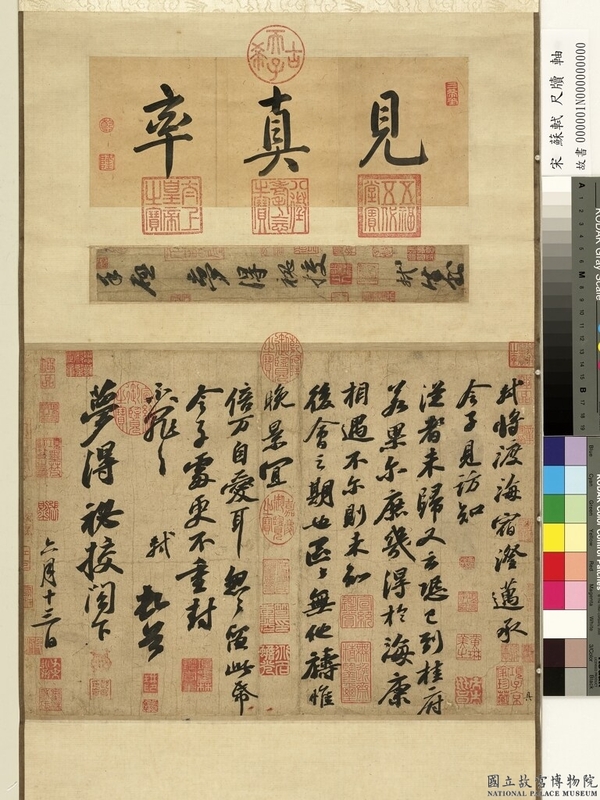 見真率
古希天子
五福五代堂寶
八徵耄念之寶
太上皇帝之寶
手啓 夢得秘校
軾 謹封
軾將渡海宿澄邁承
令子見訪知
從者未歸又云恐已到桂府
若果尔庶幾得於海康
相遇不尔則未知
後會之期也區區無他禱惟
晚景宜
倍万自愛耳匆匆留此帋
令子處更不重封
不罪不罪 軾頓首
夢得祕校閣下
六月十三日
宋 蘇軾 尺牘 軸
故書 000001N000000000
KODAK Gray Scale
KODAK Color Control Patches
國立故宮博物院
NATIONAL PALACE MUSEUM